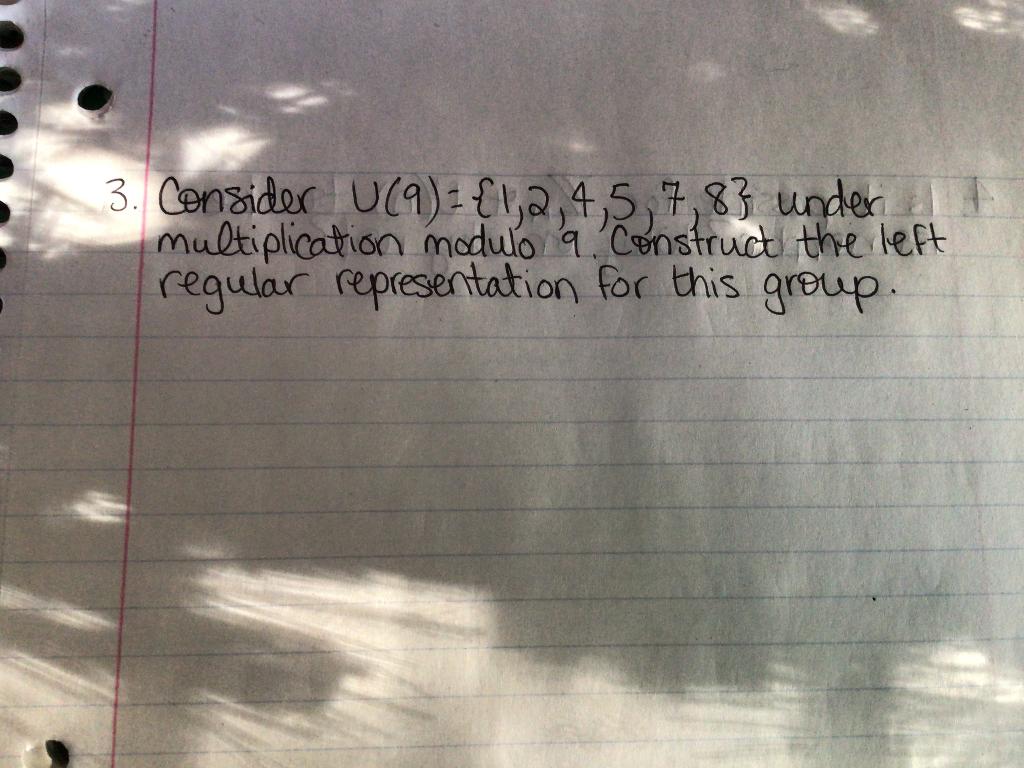 3. Consider U(9)={1,2,4,5,7,8} under
multiplication modulo 9. Construct the left
regular representation for this group.